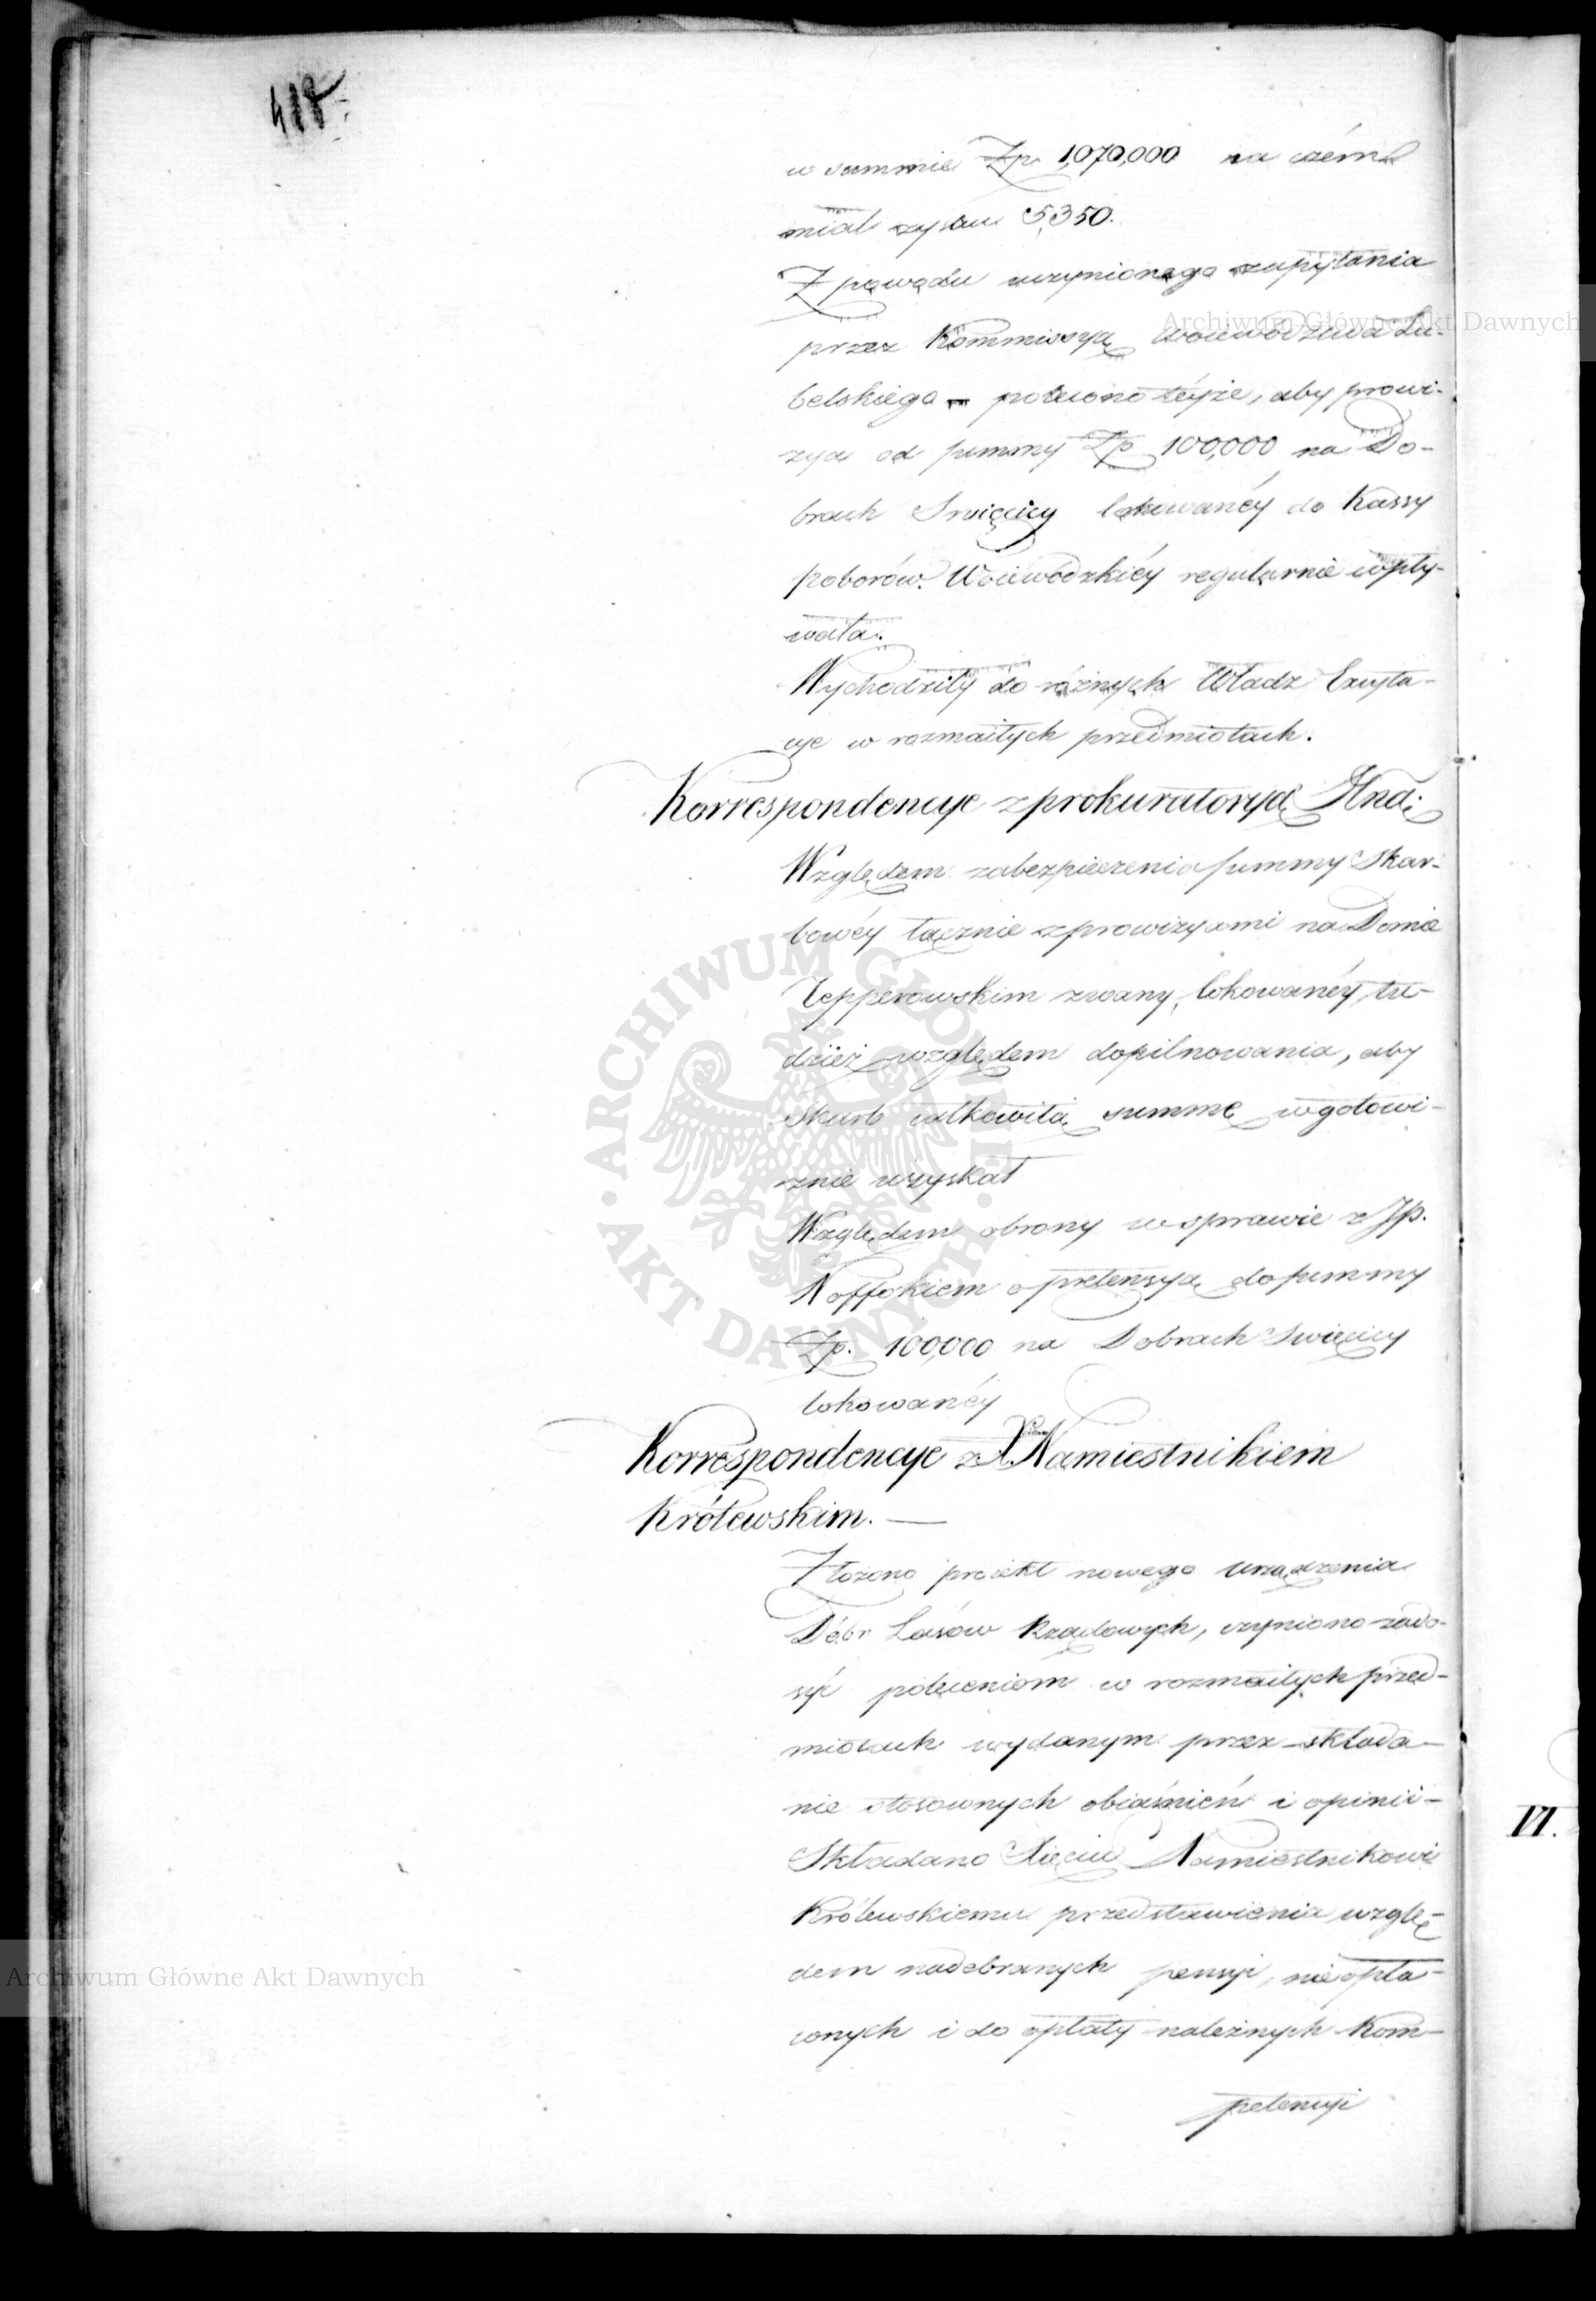 418.
w summie Zp. 1,070,000 na czém
miał zysku 5,350.
Z powodu uczynionego zapytania
przez Kommissyą Woiewodztwa Lu-
belskiego polecono téyże, aby prowi-
zya od summy Zp 100,000 na Do-
brach Swięcicy lokowanéy do Kassy
poborów. Woiewódzkiéy regularnie wpły-
wała.
Wychodziły do róźnych Władz Excyta-
cye w rozmaitych przedmiotach.
Korrespondencye z prokuratoryą Jlną:
Względem zabezpieczenia summy Skar-
bowéy łącznie z prowizyami na Domie
Tepperowskim zwany, lokowanéy, tu-
dzież względem dopilnowania, aby
Skarb całkowitą summę w gotowi-
znie uzyskał
Względem obrony w sprawie z JP.
Noffokiem o pretensyą do summy
Zp. 100,000 na Dobrach Swięcicy
lokowanéy
Korrespondencye z X. Namiestnikiem
Królewskim. —
Złożono proiekt nowego urządzenia
Dóbr Lasów Rządowych, czyniono zado-
syć poleceniom w rozmaitych przed-
miotach wydanym przez składa-
nie stosownych obiaśnień i opinii-
Składano Xięciu Namiestnikowi
Królewskiemu przedstawienia wzglę-
dem nadebranych pensyi, nieopła-
conych i do opłaty należnych Kom-
petencyi
VI.
Archiwum Główne Akt Dawnych
Archiwum Główne Akt Dawnych
ARCHIWUM GŁÓWNE · AKT DAWNYCH ·